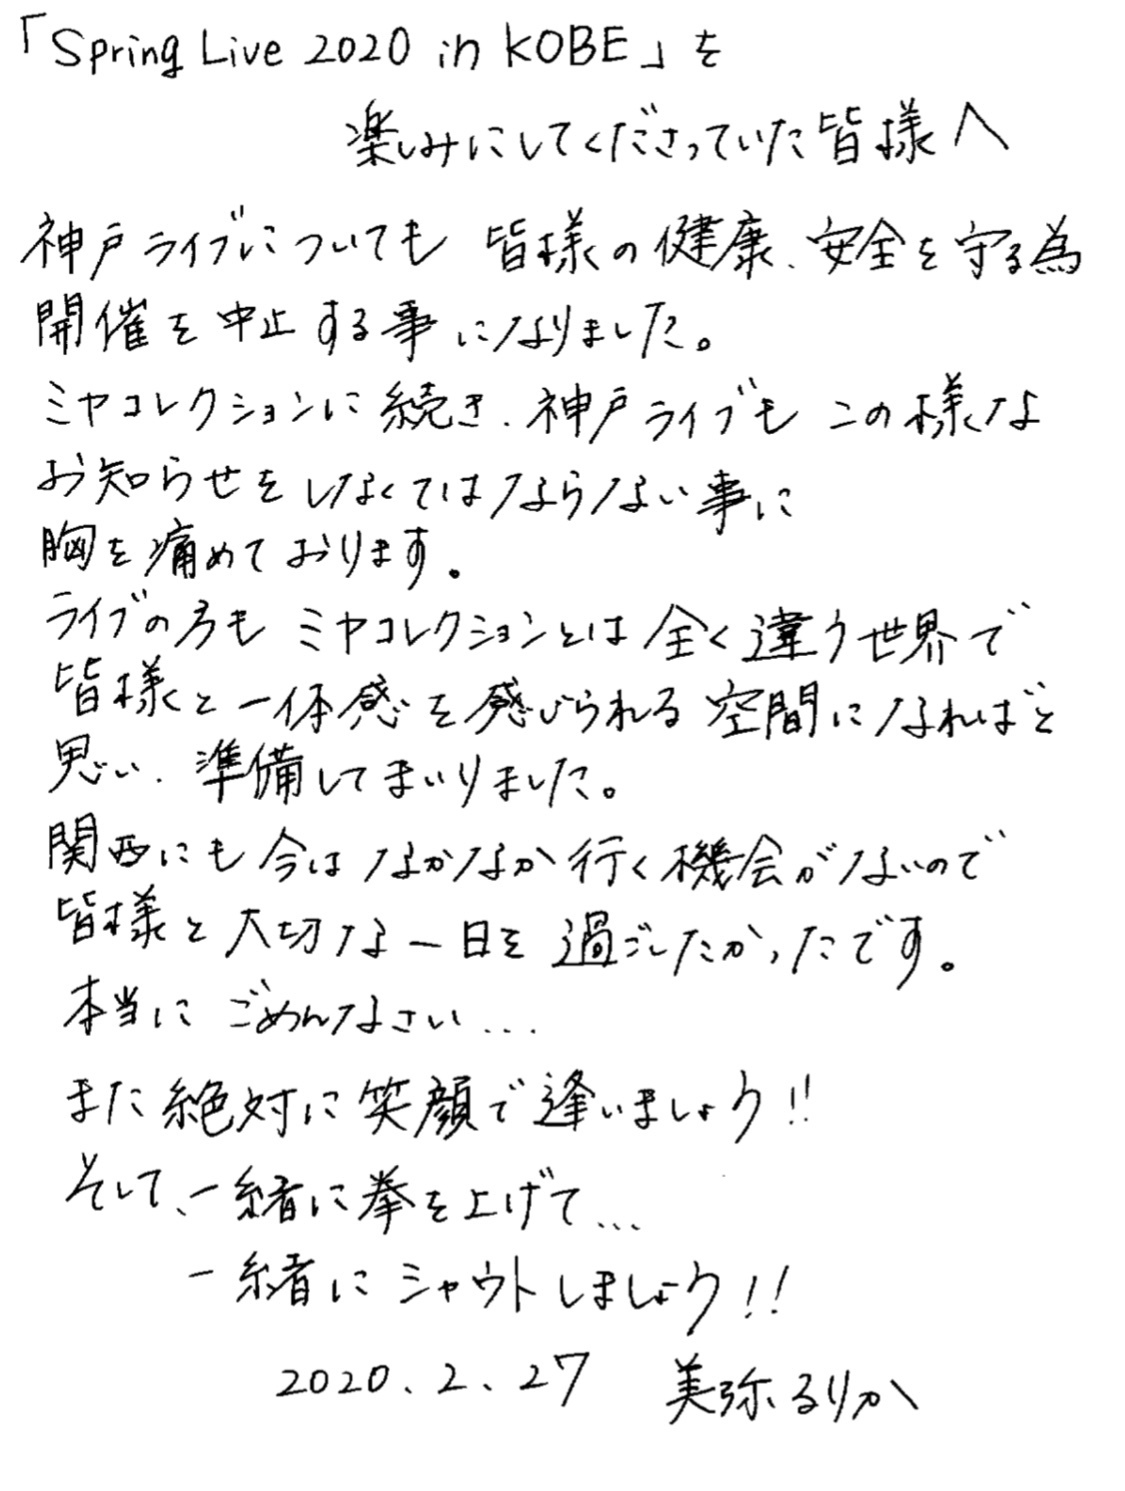 「Spring Live 2020 in KOBE」を
楽しみにしてくださっていた皆様へ
神戸ライブについても 皆様の健康、安全を守る為
開催を中止する事になりました。
ミヤコレクションに続き、神戸ライブも この様な
お知らせをしなくてはならない事に
胸を痛めております。
ライブの方も ミヤコレクションとは 全く違う世界で
皆様と一体感を感じられる 空間になればと
思い、準備してまいりました。
関西にも今はなかなか行く機会がないので
皆様と大切な一日を過ごしたかったです。
本当に ごめんなさい...
また絶対に笑顔で逢いましょう!!
そして、一緒に拳を上げて...
一緒にシャウトしましょう!!
2020.2.27 美弥るりか